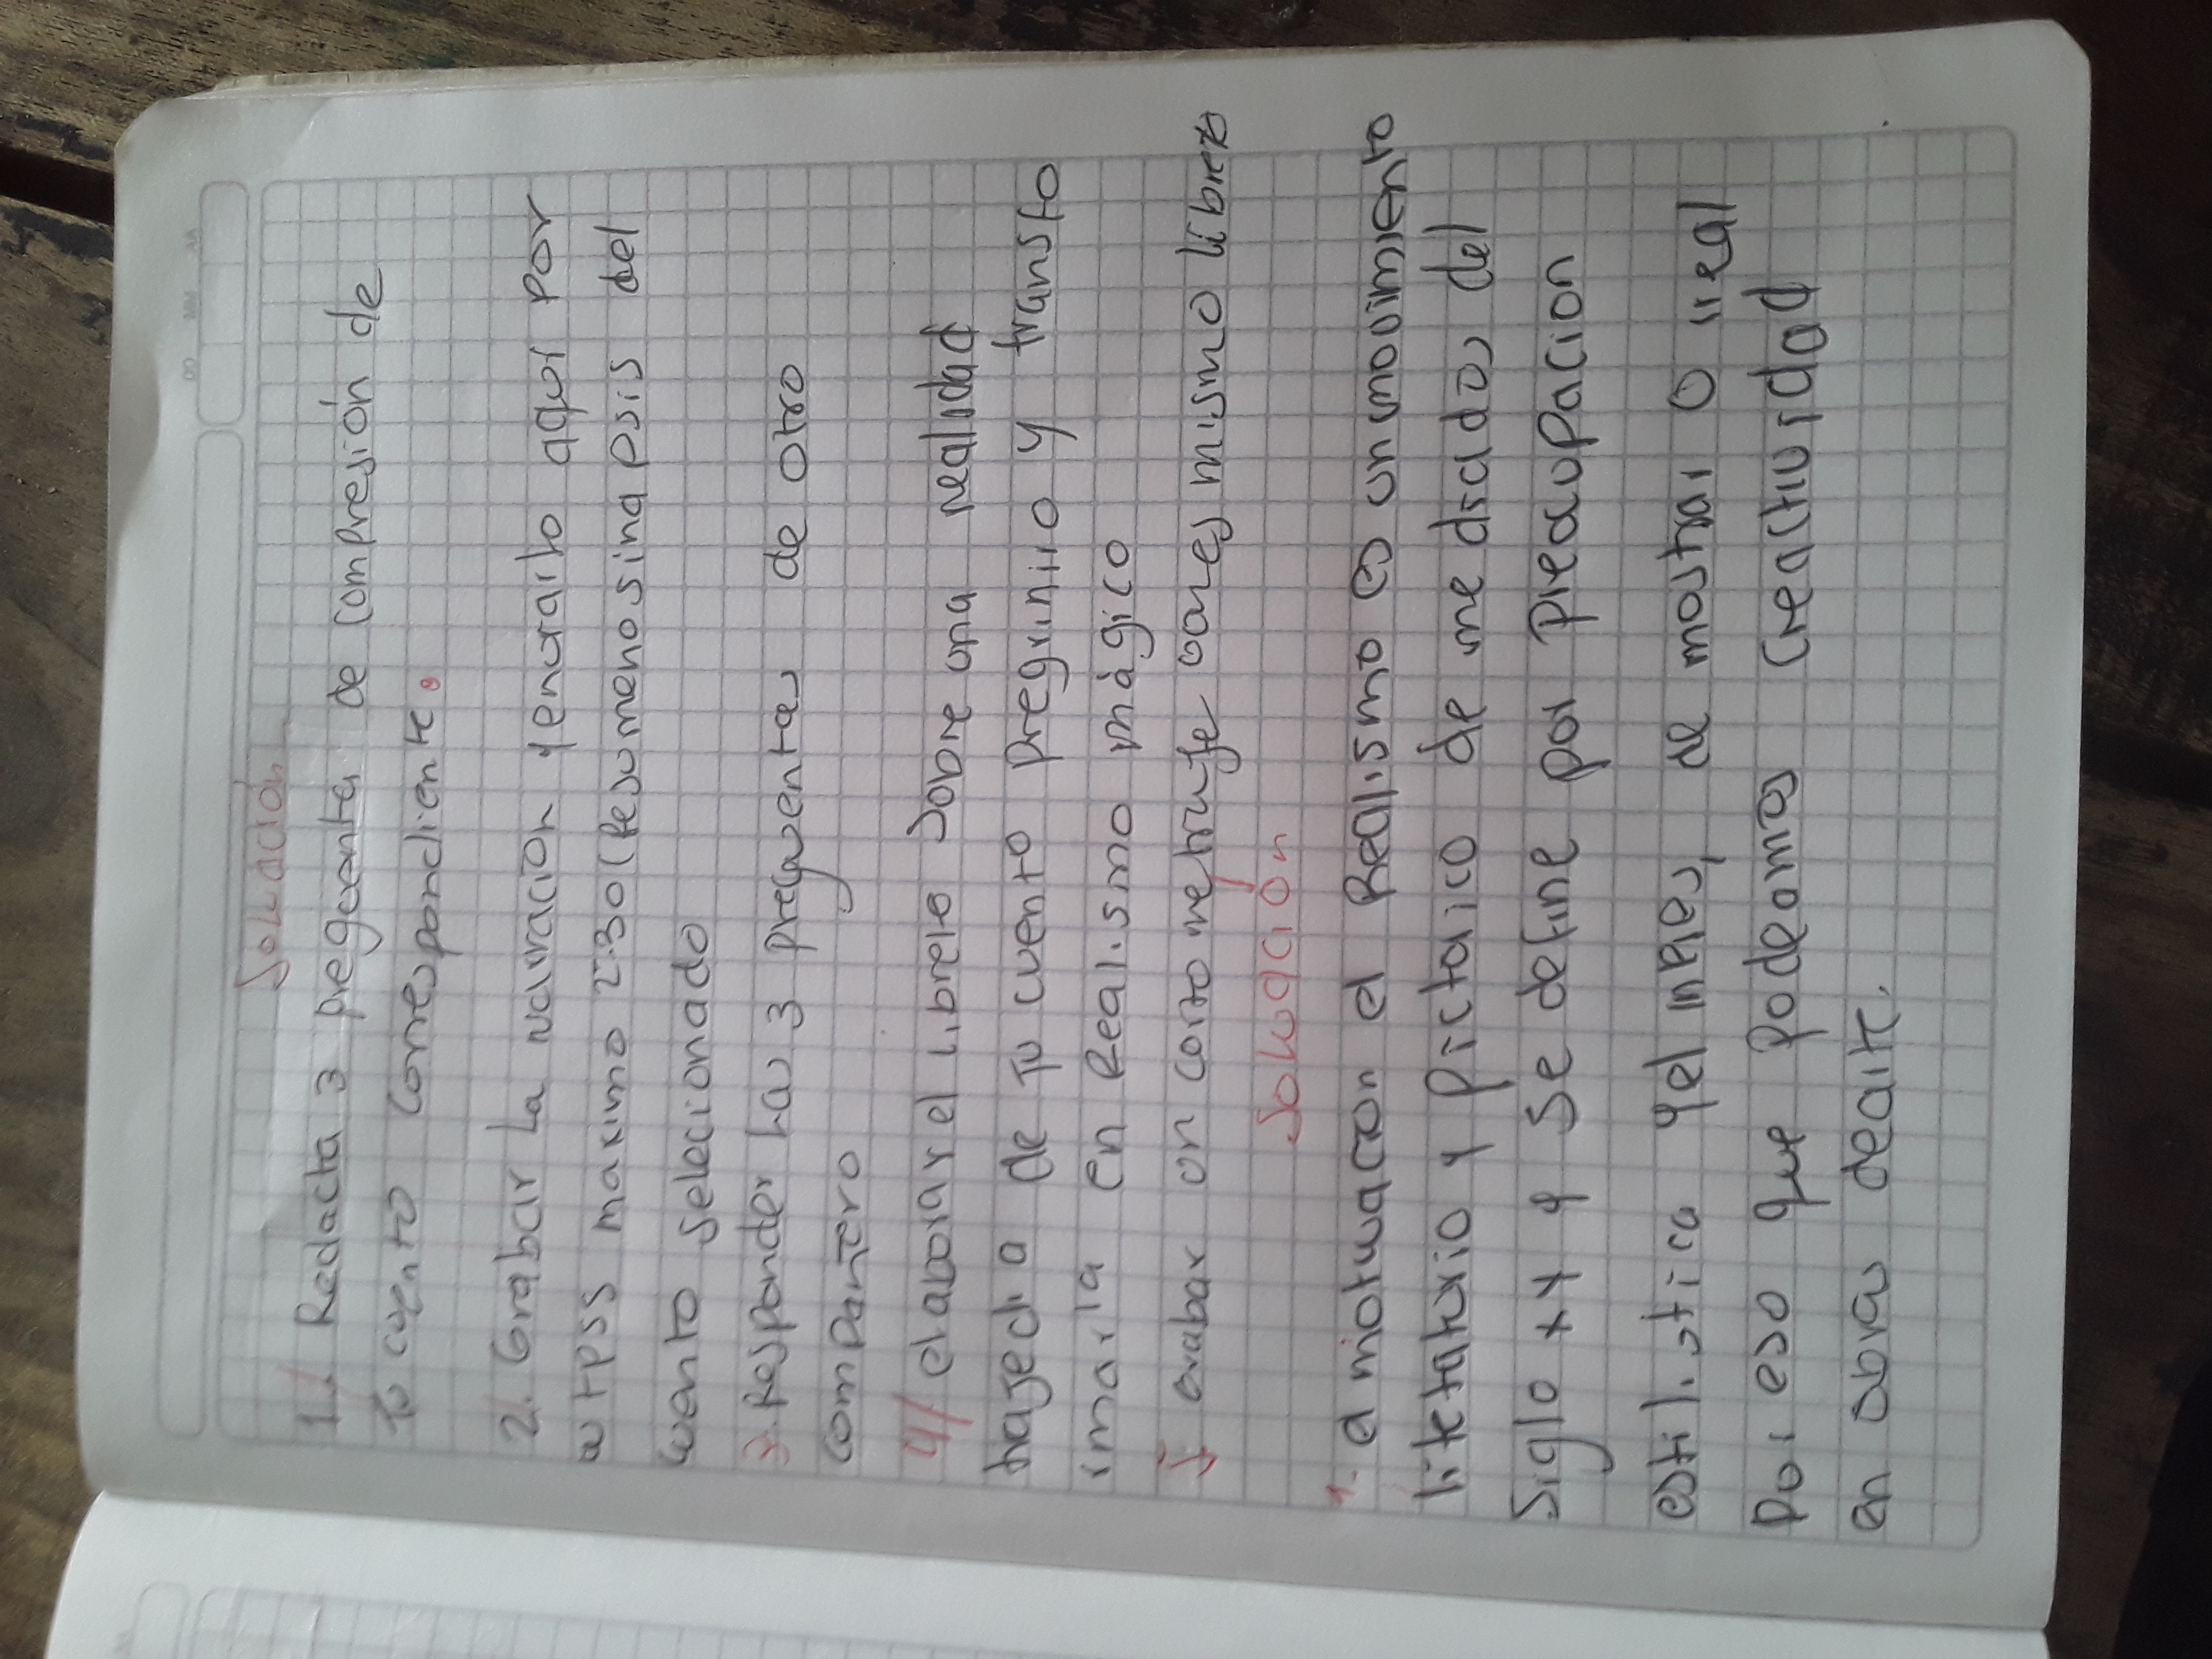 Solución
1. Redacta 3 pregunta de compresión de
Tu cuento correspondiente.
2. Grabar La narración yenviarlo aqui por
maximo 2:30 (Resumenosinapsis del
uento selecionado
3. Responder Las 3 preguentas de otro
compañero
4/ elaborar el libreto sobre una realidad
trajedia de Tu cuento pregrinirio y transfo
imarla en Realismo mágico
un corto metraje con es mismo libreto
Solución
1- a motuvacion el Realismo es un movimiento
litetaturio y pictorico de mediados del
Siglo xy y Se define por preocupacion
estilistica yel interes, de mostrar o ireal
por eso que podeamos creactividad
en obras dearte.